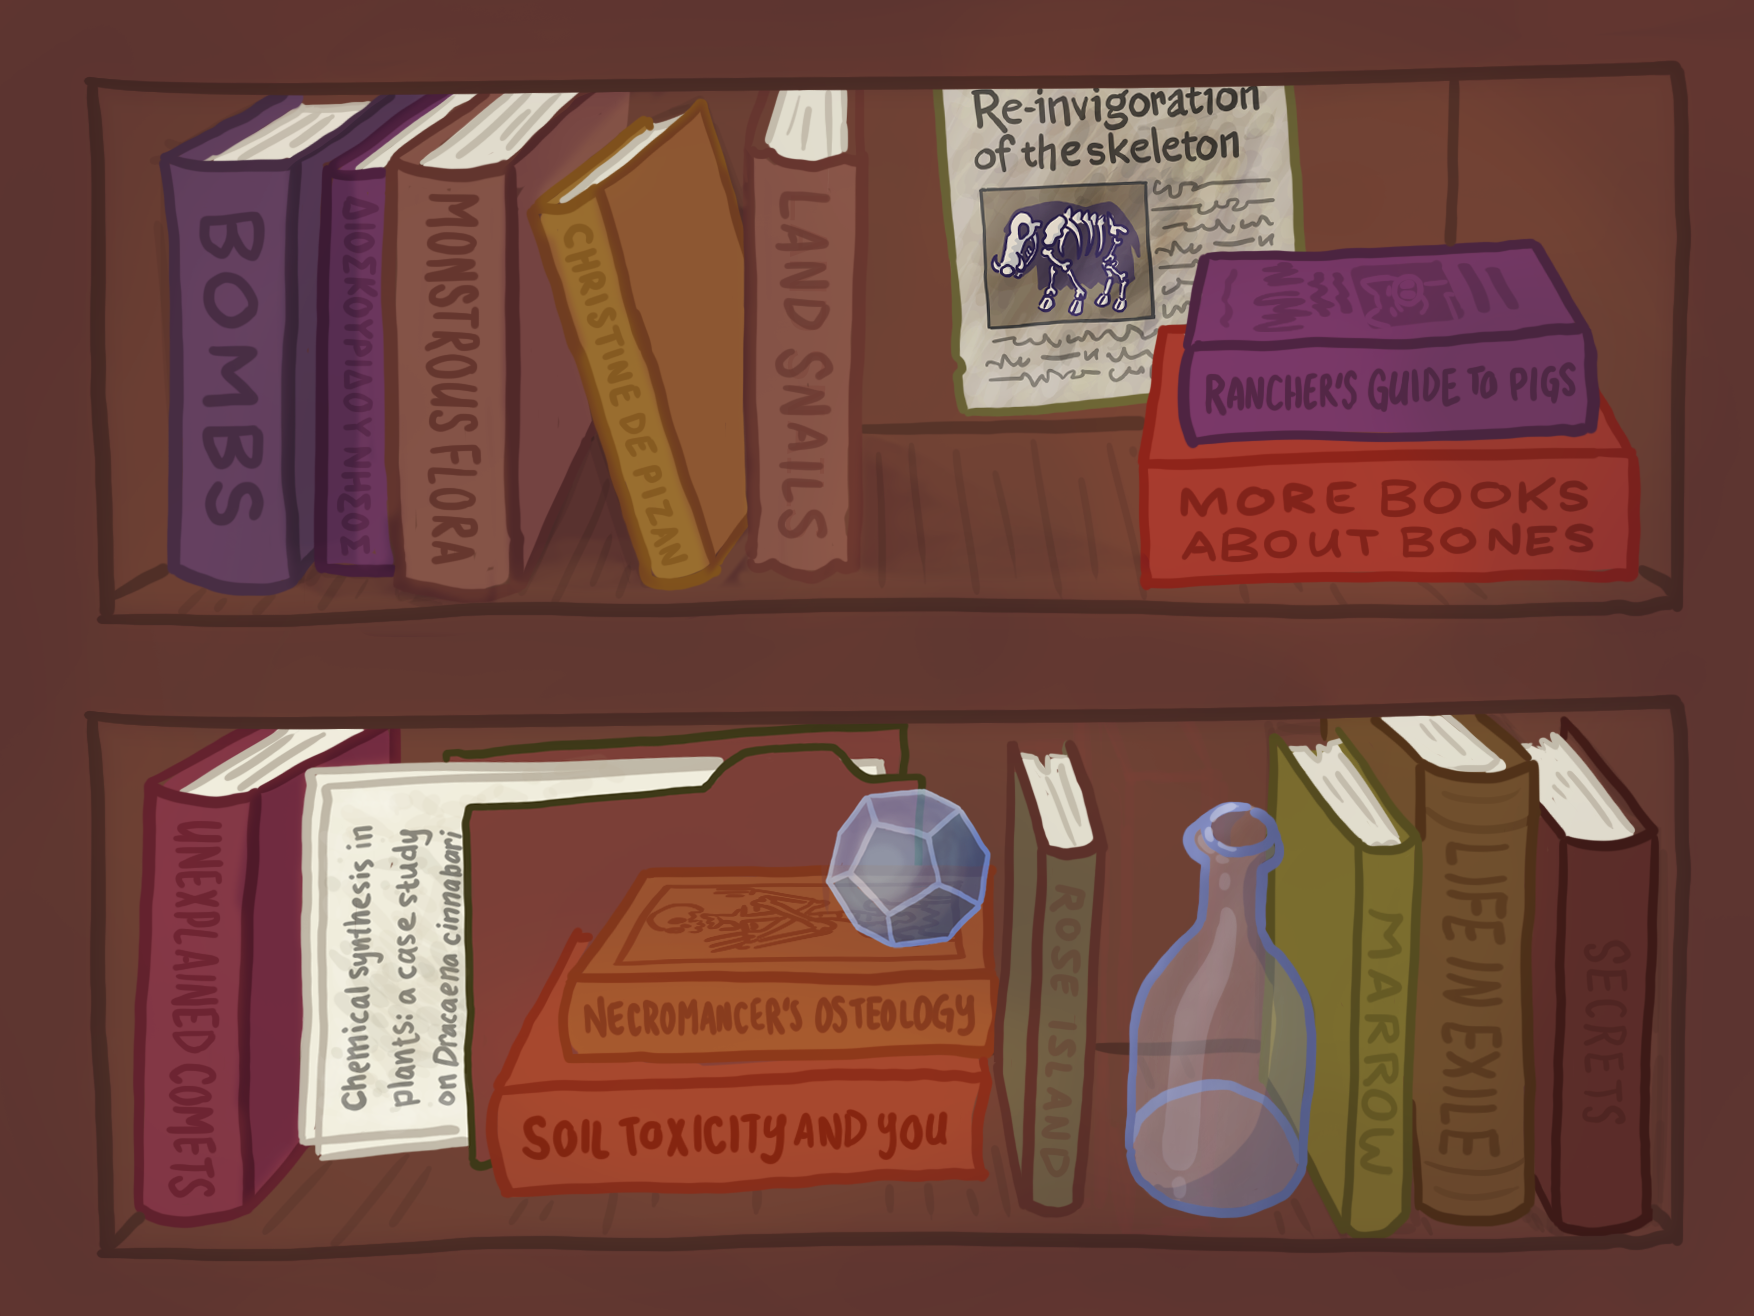 BOMBS
ΔΙΟΣΚΟΥΡΙΔΟΥ ΝΗΣΟΣ
MONSTROUS FLORA
CHRISTINE DE PIZAN
LAND SNAILS
Re-invigoration
of the skeleton
RANCHER'S GUIDE TO PIGS
MORE BOOKS
ABOUT BONES
UNEXPLAINED COMETS
Chemical synthesis in
plants: a case study
on Dracaena cinnabari
NECROMANCER'S OSTEOLOGY
SOIL TOXICITY AND YOU
ROSE ISLAND
MARROW
LIFE IN EXILE
SECRETS